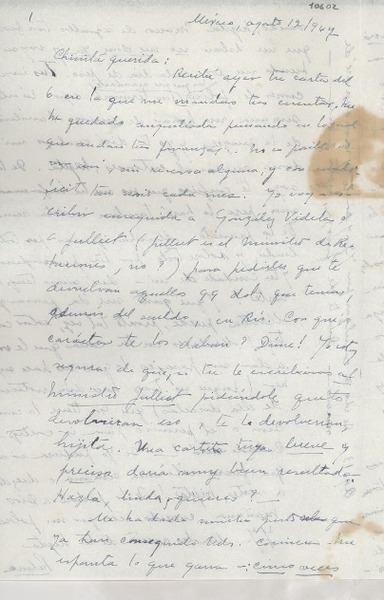 10602
1
México, agosto 12/1947
Chinita querida:
Recibí ayer tu carta del
6 con la que me mandas tus cuentas, me
ha quedado angustiada pensando en lo mal
que andan tus finanzas. No es posible
sin reserva alguna, y con
ficit tan cada mes. Yo voy a es
cribir enseguida a González Videla o
a Julliet (Julliet es el Ministro de Re
laciones, no?) para pedirles que te
devuelvan aquellos 99 dols que tenías,
además del sueldo en Río. Con qué
carácter te los daban? Dime! Yo estoy
segura de que, si tu le escribieras al
ministro Julliet pidiéndole que te
devolvieran eso, te lo devolverían,
hijita. Una cartita tuya breve y
precisa daría muy buen resultado.
Hazla, linda, quieres?
Me ha dado mucho gusto saber que
ya han conseguido Uds. cocinera. Me
espanta lo que gana -: cinco veces